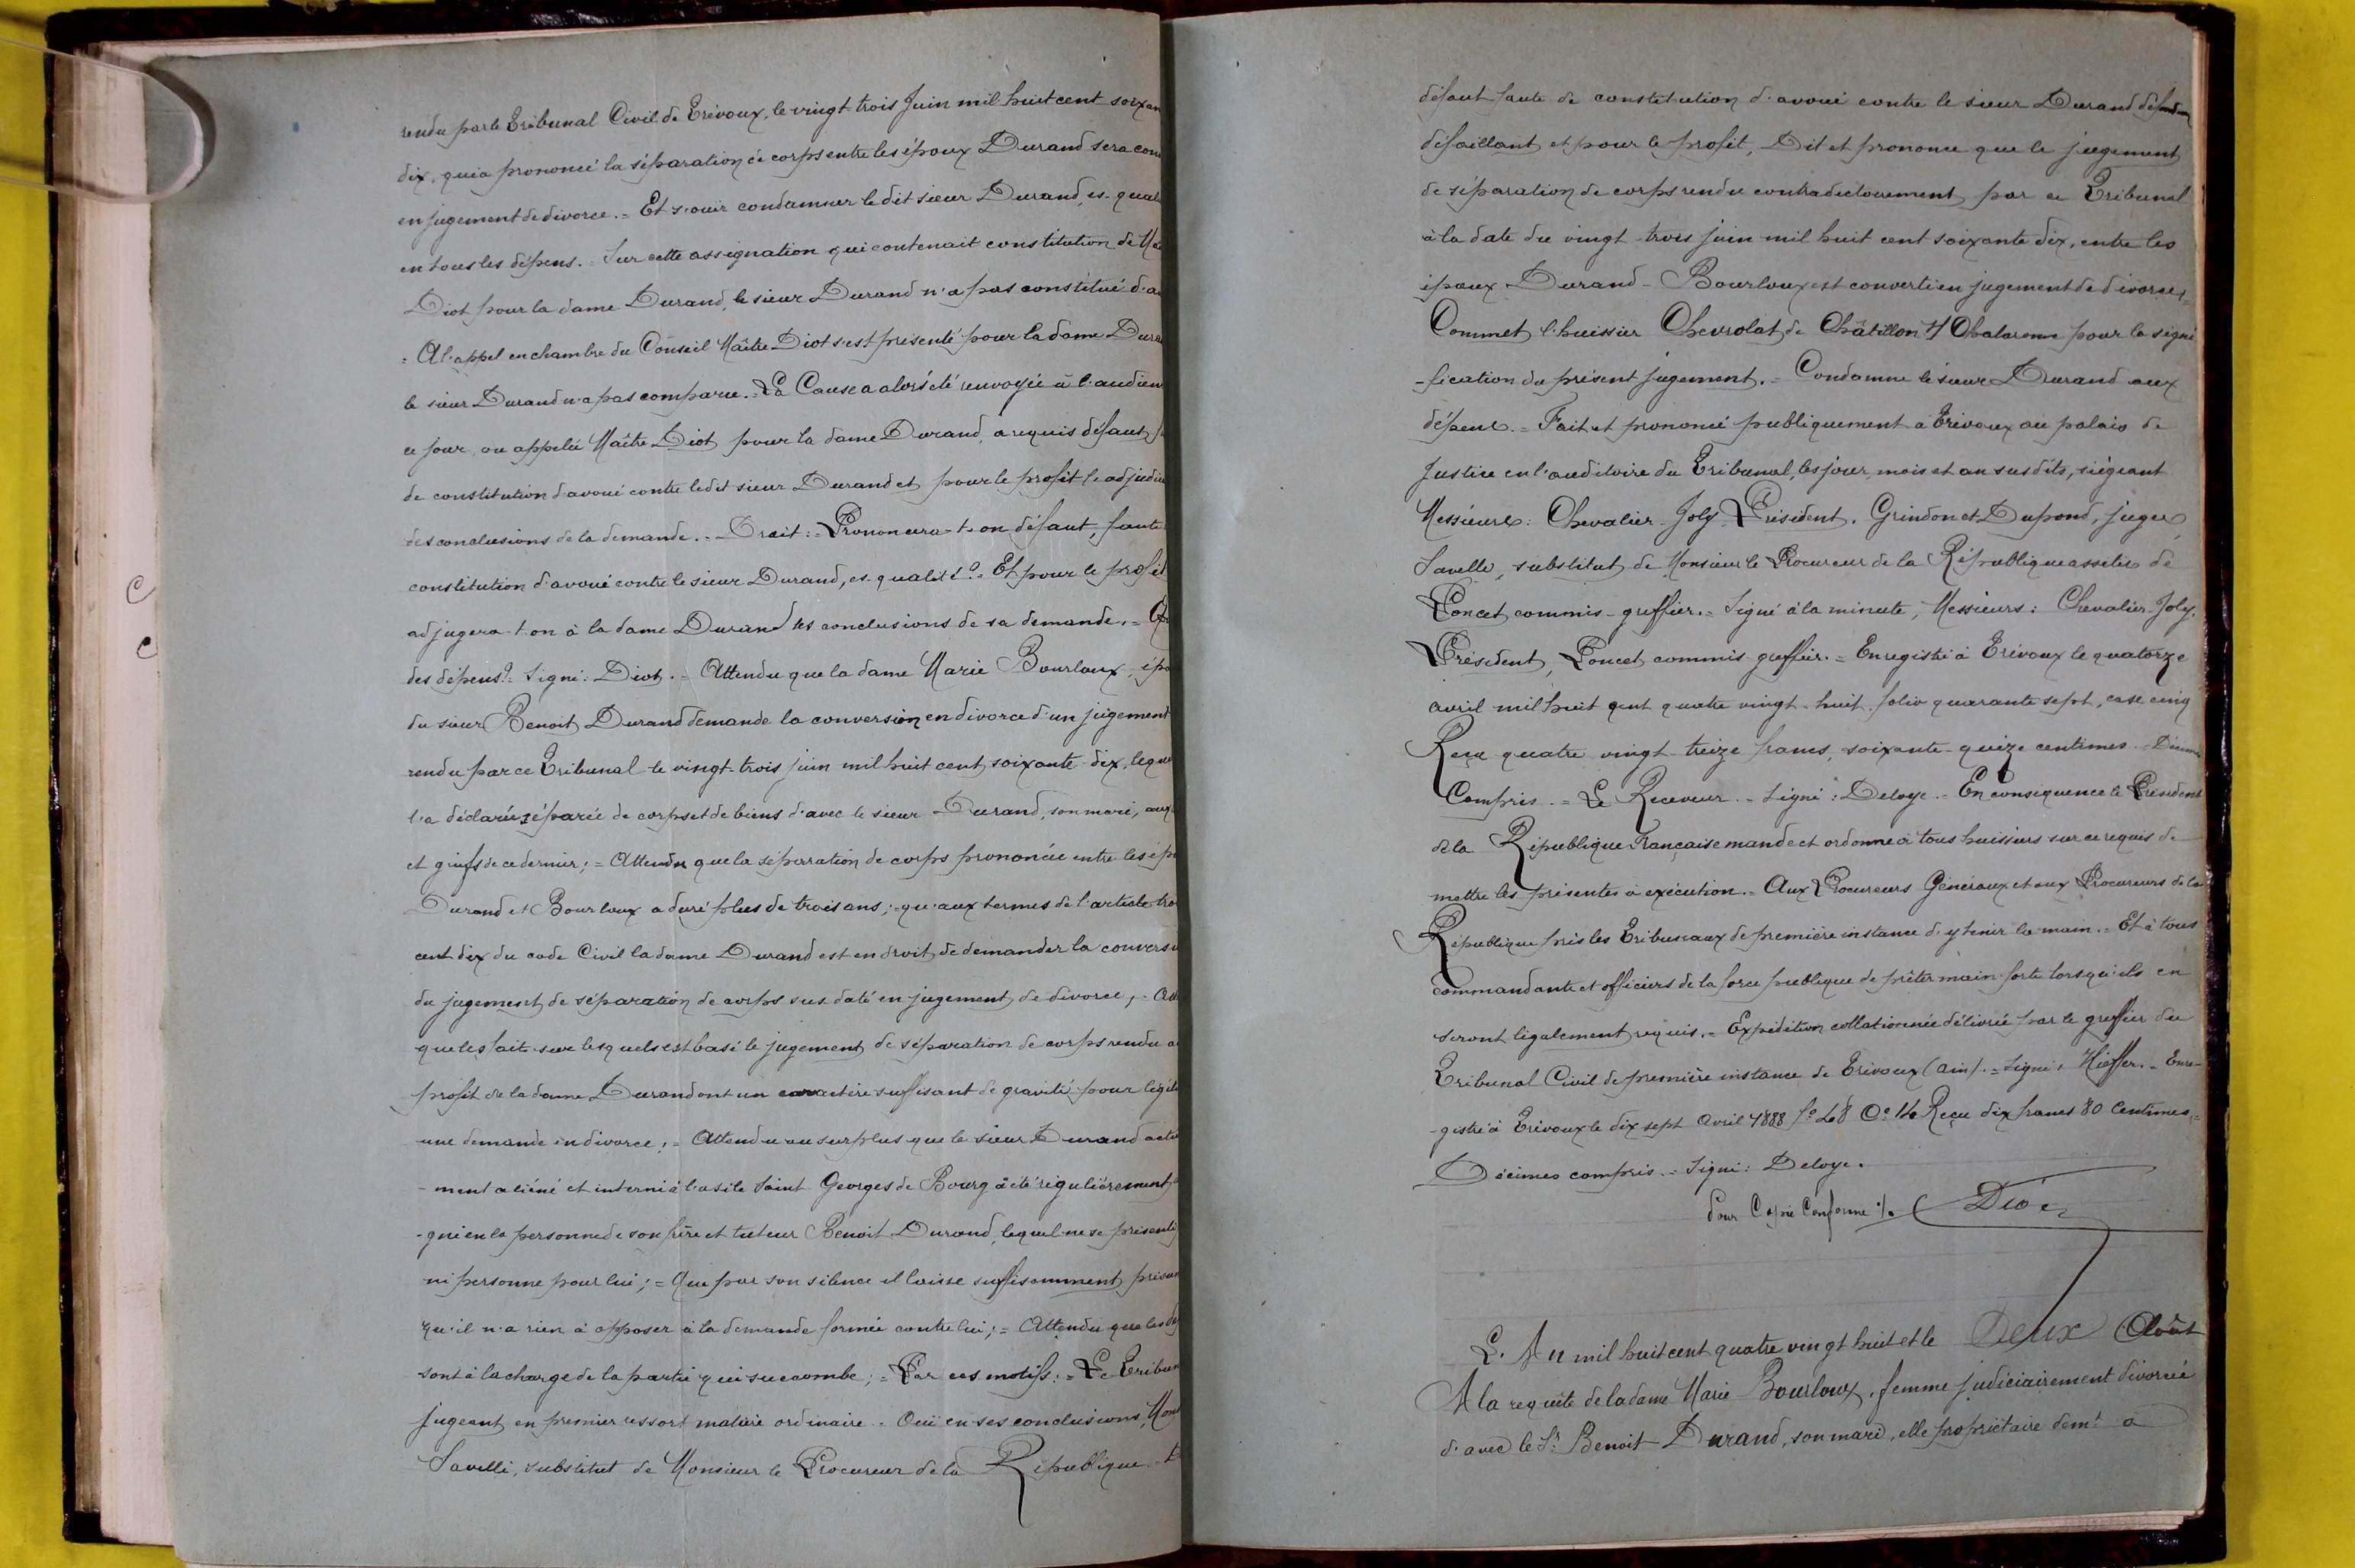 rendu par le Tribunal Civil de Trévoux, le vingt trois Juin mil huit cent soixan
dix, qui a prononcé la séparation de corps entre les époux Durand sera con
en jugement de divorce. = Et s'ouïr condamner le dit sieur Durand, es-qual
en tous les dépens. = Sur cette assignation qui contenait constitution de Ma
Diot pour la dame Durand, le sieur Durand n'a pas constitué d'a
= A l'appel en chambre du Conseil Maître Diot s'est présenté pour la dame Dura
le sieur Durand n'a pas comparu. = La Cause a alors été renvoyée à l'audien
ce jour, ou appelée Maître Diot pour la dame Durand, a requis défaut f
de constitution d'avoué contre ledit sieur Durand et pour le profit l'adjudic
des conclusions de la demande. = Droit: = Prononcera-t-on défaut, faute
constitution d'avoué contre le sieur Durand, es-qualité? = Et pour le profit
adjugera-t-on à la dame Durand les conclusions de sa demande. = Q
des dépens? = Signé: Diot. = Attendu que la dame Marie Bourloux, épo
du sieur Benoit Durand demande la conversion en divorce d'un jugement
rendu par ce Tribunal le vingt-trois juin mil huit cent soixante-dix, leque
l'a déclarée séparée de corps et de biens d'avec le sieur Durand, son mari, aux
et griefs de ce dernier; = Attendu que la séparation de corps prononcée entre les épo
Durand et Bourloux a duré plus de trois ans; = qu'aux termes de l'article tro
cent dix du code Civil la dame Durand est en droit de demander la conversi
du jugement de séparation de corps sus-daté en jugement de divorce; = Att
que les faits sur lesquels est basé le jugement de séparation de corps rendu a
profit de la dame Durand ont un caractère suffisant de gravité pour légit
une demande en divorce; = Attendu au surplus que le sieur Durand actu
-ment aliéné et interné à l'asile Saint Georges de Bourg a été régulièrement
-gné en la personne de son frère et tuteur Benoit Durand, lequel ne se présente
ni personne pour lui; = Que par son silence il laisse suffisamment présum
qu'il n'a rien à opposer à la demande formée contre lui; = Attendu que les dé
sont à la charge de la partie qui succombe; = Par ces motifs: = Le Tribun
jugeant en premier ressort matière ordinaire = Ouï en ses conclusions, Mons
Savelli, substitut de Monsieur le Procureur de la République
défaut faute de constitution d'avoué contre le sieur Durand
défaillant et pour le profit, Dit et prononce que le jugement
de séparation de corps rendu contradictoirement par ce Tribunal
à la date du vingt-trois juin mil huit cent soixante dix, entre les
époux Durand-Bourloux est converti en jugement de divorce; =
Commet l'huissier Chevrolat de Châtillon s/ Chalaronne pour la signi
-fication du présent jugement. = Condamne le sieur Durand aux
dépens. = Fait et prononcé publiquement à Trévoux au palais de
Justice en l'auditoire du Tribunal, les jour, mois et an susdits, siégeant
Messieurs: Chevalier-Joly Président, Grindon et Dupond, juges,
Savelle, substitut de Monsieur le Procureur de la République assistés de
Poncet commis-greffier. = Signé à la minute, Messieurs: Chevalier-Joly,
Président, Poncet commis-greffier. = Enregistré à Trévoux le quatorze
avril mil huit cent quatre vingt-huit folio quarante sept, case cinq
Reçu quatre vingt-treize francs, soixante-quize centimes
Compris. = Le Receveur. = Signé: Deloye. = En conséquence le Président
de la République Française mande et ordonne à tous huissiers sur ce requis de
mettre les présentes à exécution. = Aux Procureurs Généraux et aux Procureurs de la
République près les Tribunaux de première instance d'y tenir la main. = Et à tous
commandants et officiers de la force publique de prêter main forte lorsqu'ils en
seront légalement requis. = Expédition collationnée délivrée par le greffier du
Tribunal Civil de première instance de Trévoux (Ain). = Signé: Hieffer. = Enre-
-gistré à Trévoux le dix sept Avril 1888 f° 48 C° 14 Reçu dix francs 80 Centimes, =
Décimes compris. = Signé: Deloye.
Pour Copie Conforme ./. Diot
L'An mil huit cent quatre vingt huit et le Deux Août
A la requête de la dame Marie Bourloux, femme judiciairement divorcée
d'avec le Sr Benoit Durand, son mari, elle propriétaire demt à